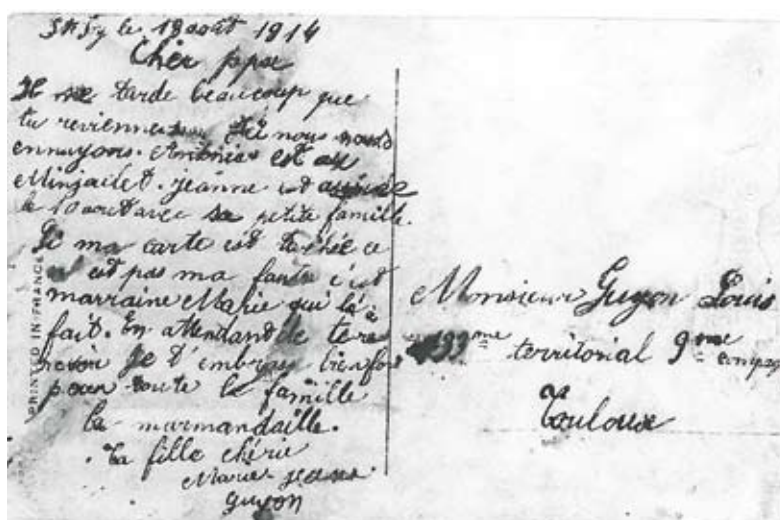 St Sy le 18 août 1914
Cher papa
Il me tarde beaucoup que
tu reviennes Ici nous nous
ennuyons. Antonia est au
Minjailet. Jeanne est
le 10 aout avec sa petite famille.
Si ma carte est tachée ce
n'est pas ma faute c'est
marraine Marie qui là
fait. En attendant
revoir Je t'embrase bien
pour toute la famille
la marmandaille.
Ta fille chérie
Marie jeanne
guyon
PRINTED IN FRANCE
Monsieur Guyon Louis
133ème territorial 9me compag
Toulouse